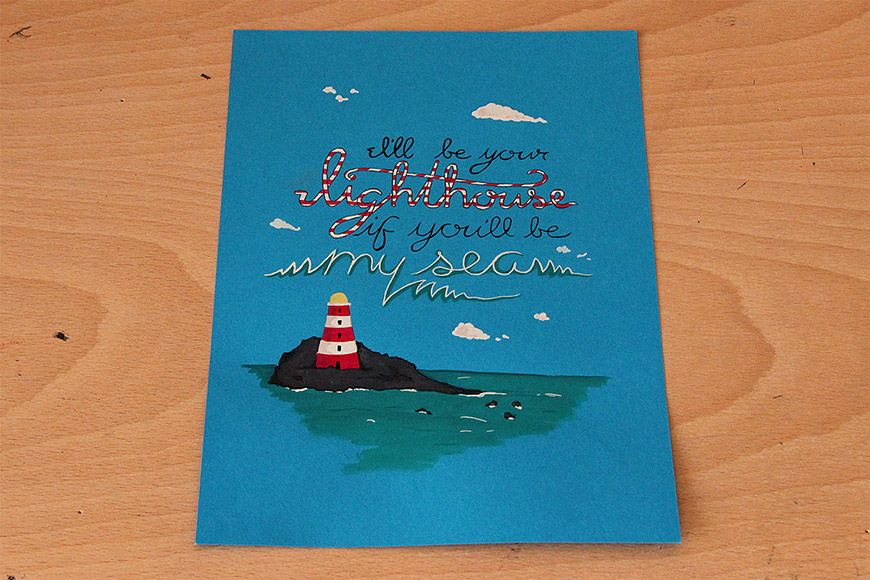 I'll be your
lighthouse
if you'll be
my sea